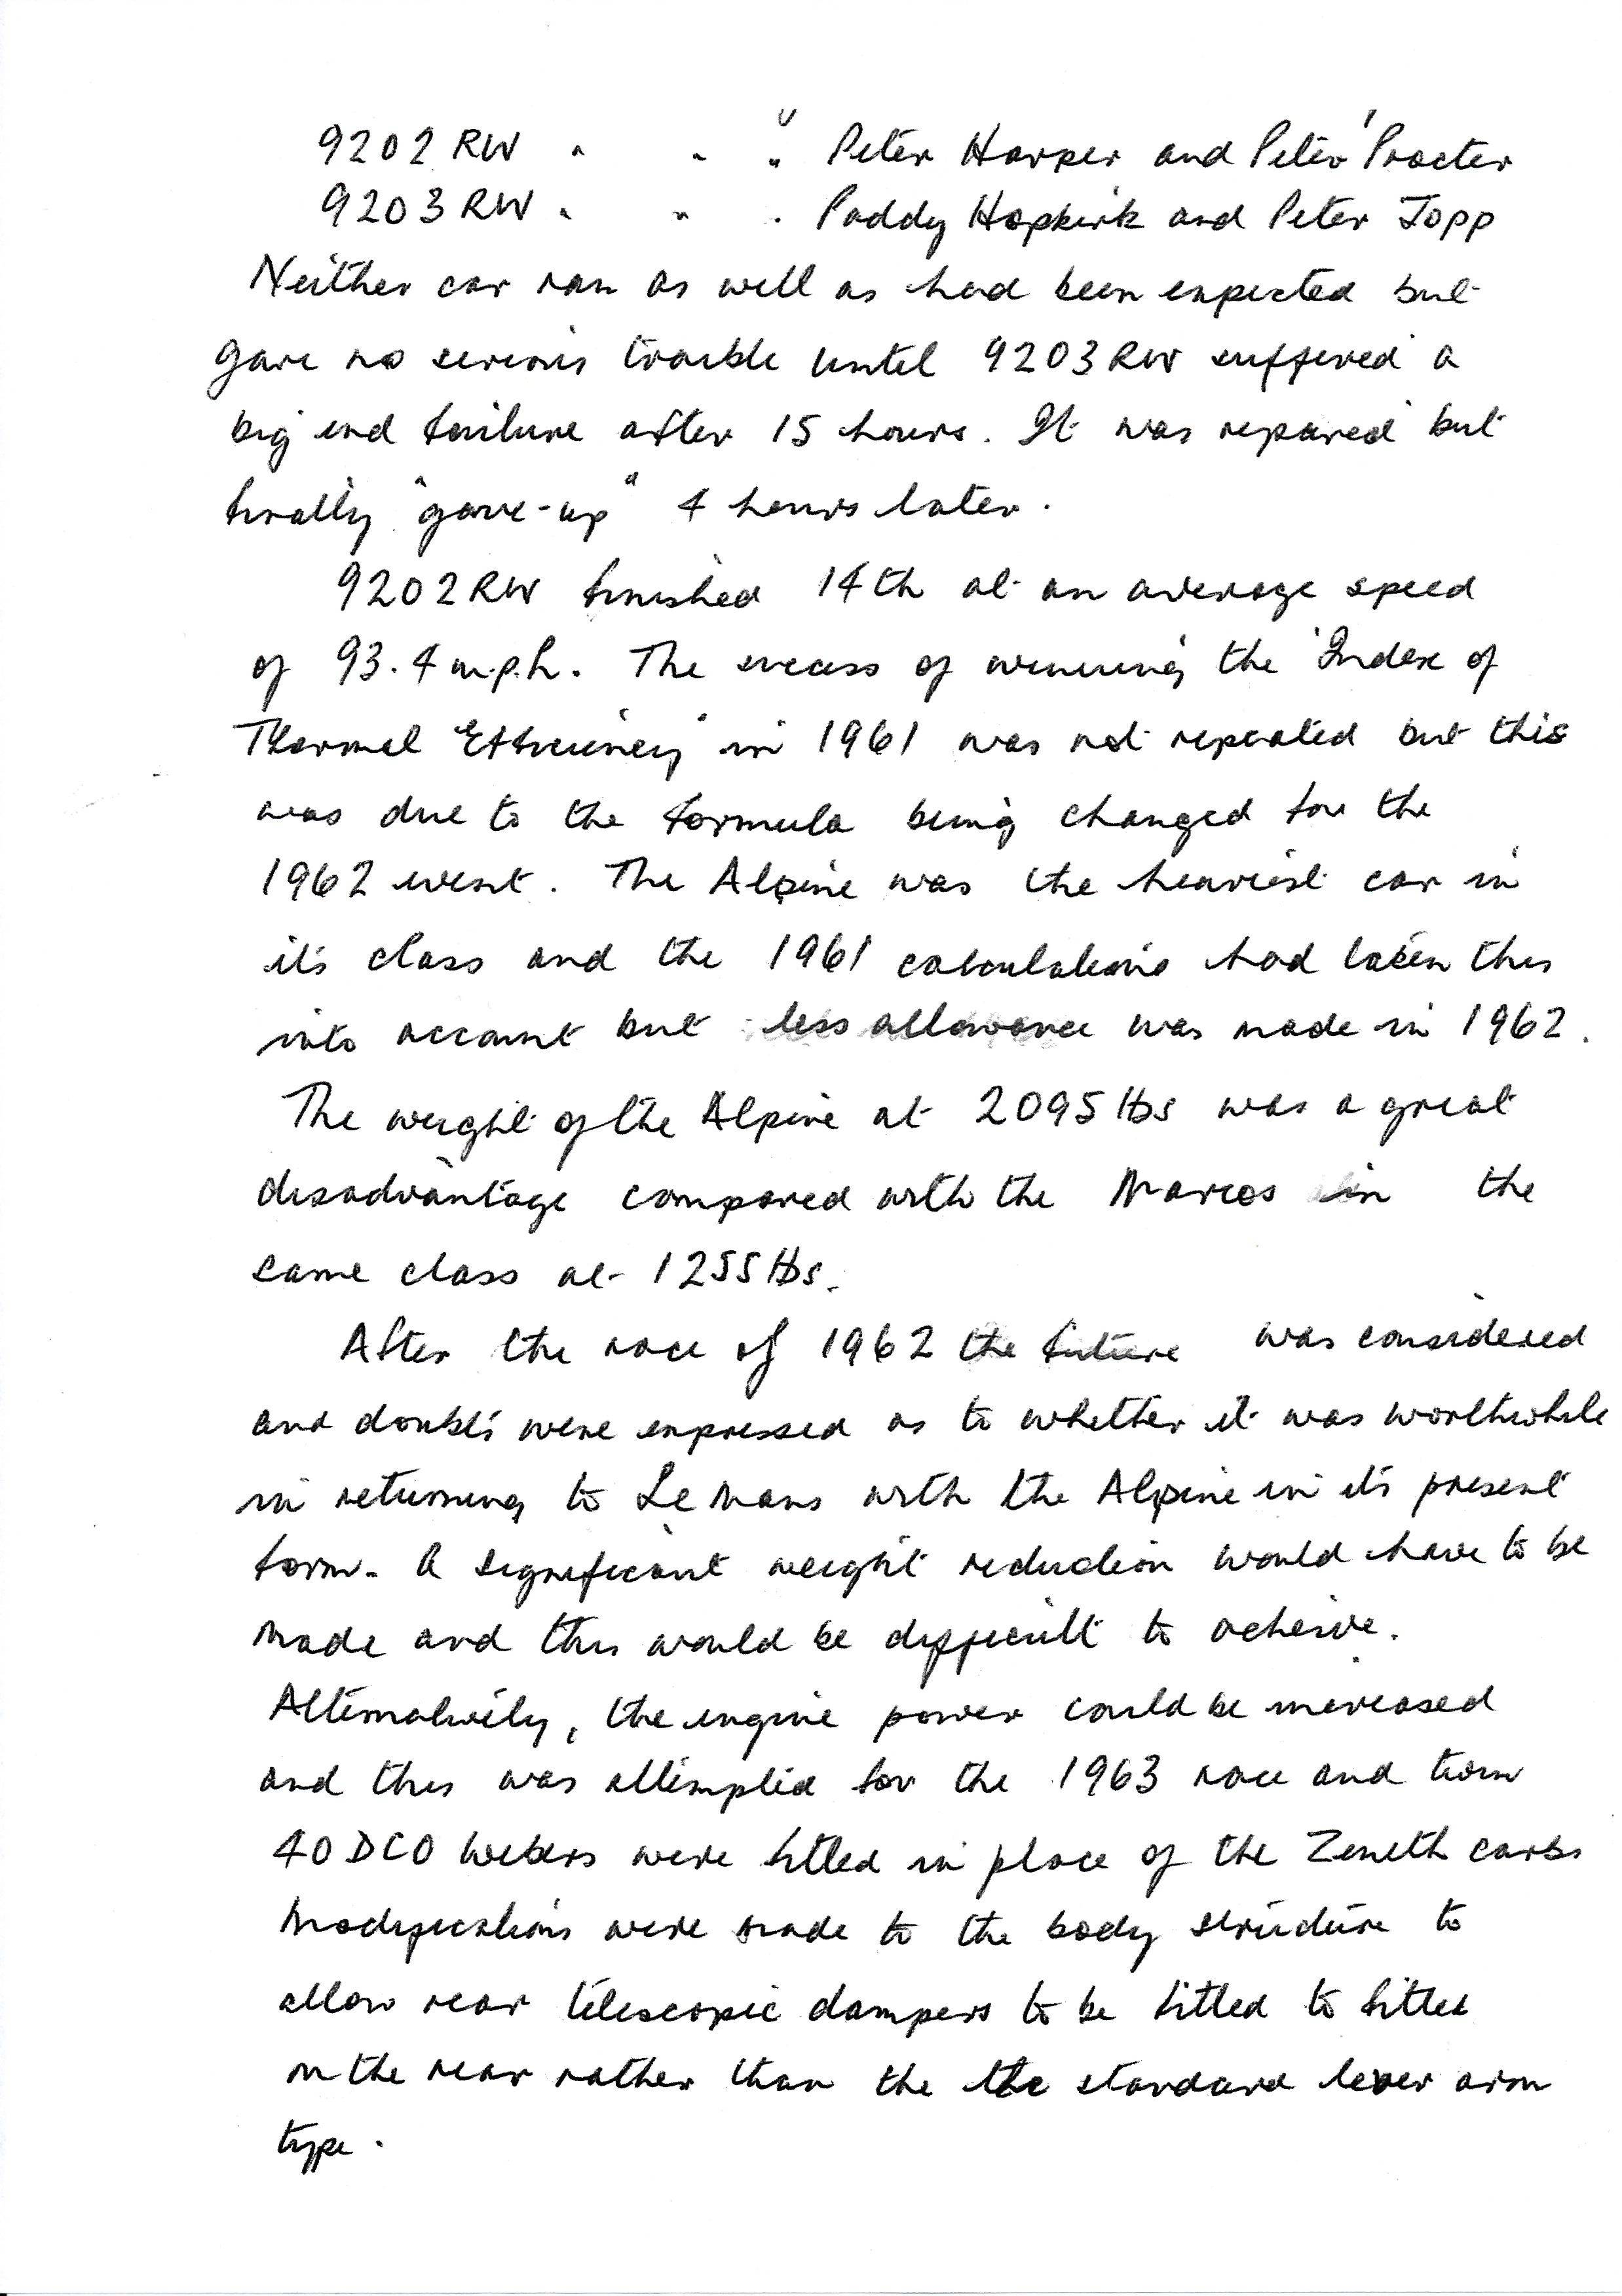 9202 RW " " " Peter Harper and Peter Procter
9203 RW " " " Paddy Hopkirk and Peter Jopp
Neither car ran as well as had been expected but
gave no serious trouble until 9203 RW suffered a
big end failure after 15 hours. It was repaired but
finally "gave-up" 4 hours later.
9202 RW finished 14th at an average speed
of 93.4 m.p.h. The sucess of winning the 'Index of
Thermal Efficiency' in 1961 was not repeated but this
was due to the formula being changed for the
1962 event. The Alpine was the heaviest car in
it's class and the 1961 calculations had taken this
into account but less allowance was made in 1962.
The weight of the Alpine at 2095 lbs was a great
disadvantage compared with the Marcos in the
same class at 1255 lbs.
After the race of 1962 the future was considered
and doubts were expressed as to whether it was worthwhile
in returning to Le Mans with the Alpine in it's present
form. A significant weight reduction would have to be
made and this would be difficult to acheive.
Alternatively, the engine power could be increased
and this was attempted for the 1963 race and twin
40 DCO Webers were fitted in place of the Zenith carbs
Modifications were made to the body structure to
allow rear telescopic dampers to be fitted to fitted
on the rear rather than the the standard lever arm
type.